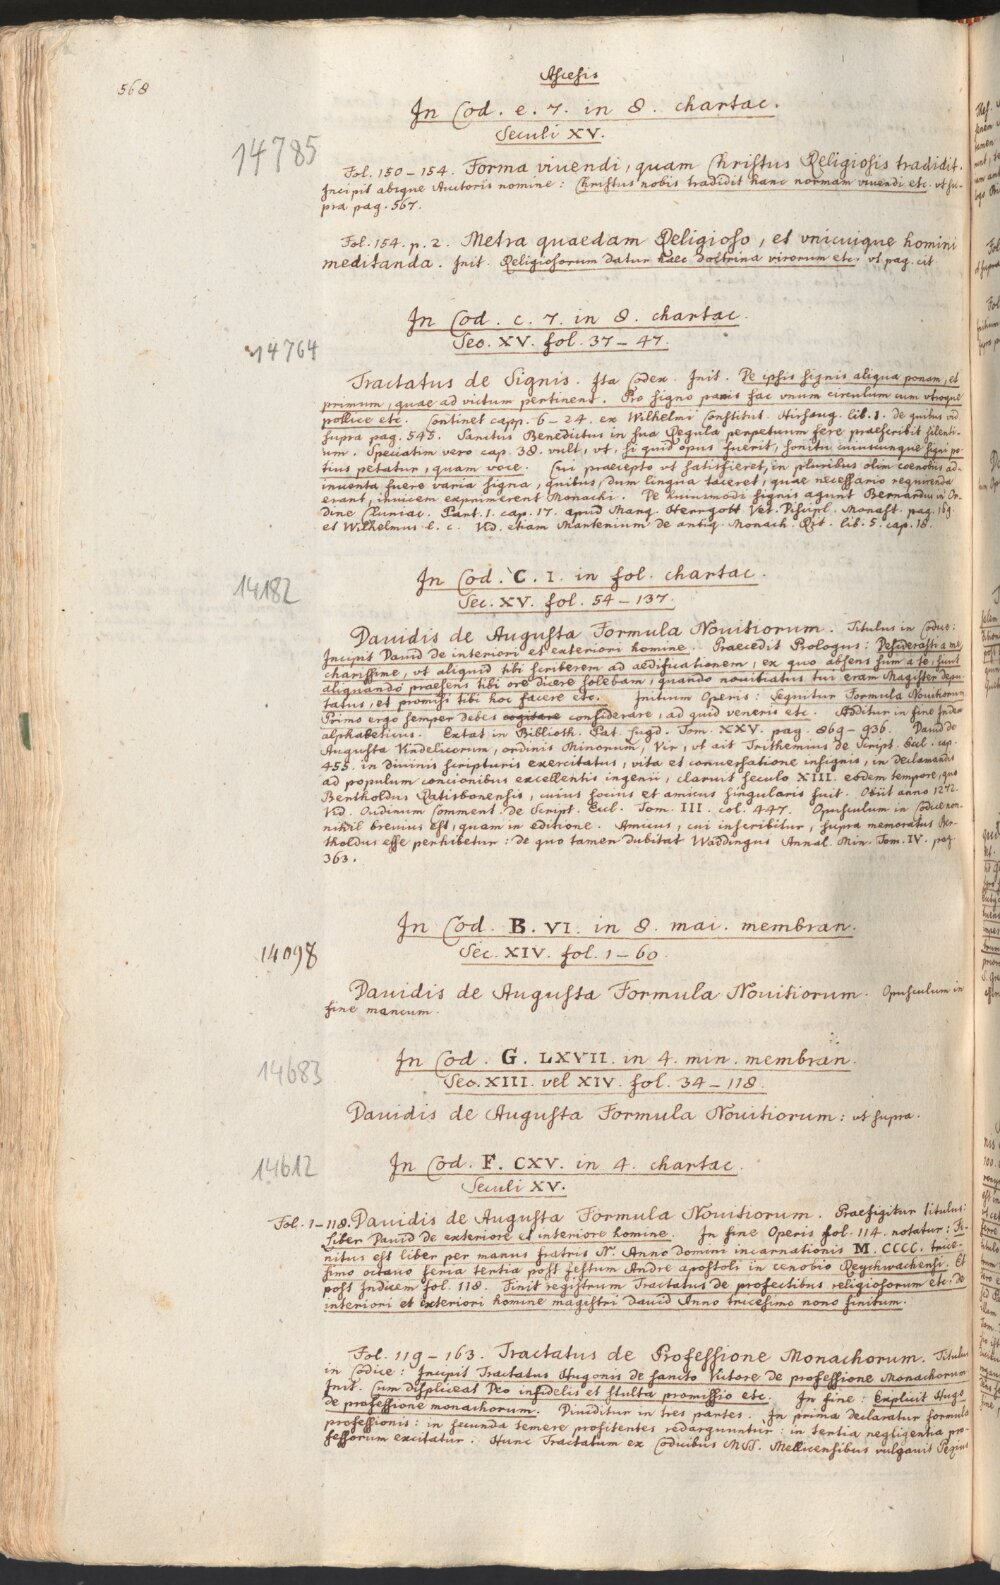 568
Ascesis
In Cod. e. 7. in 8. chartac.
Seculi XV.
14785
Fol. 150–154. Forma viuendi, quam Christus Religiosis tradidit.
Incipit absque Auctoris nomine: Christus nobis tradidit hanc normam viuendi etc. vt su-
pra pag. 567.
Fol. 154. p. 2. Metra quaedam Religioso, et vnicuique homini
meditanda. Init. Religiosorum datur haec doctrina virorum etc. vt pag. cit.
In Cod. c. 7. in 8. chartac.
Sec. XV. fol. 37–47.
14764
Tractatus de Signis. Ita Codex. Init. De ipsis signis aliqua ponam, et
primum, quae ad victum pertinent. Pro signo panis fac vnum circulum cum vtroque
pollice etc. Continet capp. 6–24. ex Wilhelmi Constitut. Hirsaug. lib. 1. de quibus vid
supra pag. 545. Sanctus Benedictus in sua Regula perpetuum fere praescribit silenti-
um. Speciatim vero cap. 38. vult, vt, si quid opus fuerit, sonitu cuiuscunque signi po-
tius petatur, quam voce. Cui praecepto vt satisfieret, in pluribus olim coenobiis ad-
inuenta fuere varia signa, quibus, dum lingua taceret, quae necessario requirenda
erant, inuicem exprimerent Monachi. De huiusmodi signis agunt Bernardus in Or-
dine Cluniac. Part. 1. cap. 17. apud Marq. Herrgott Vet. Discipl. Monast. pag. 169.
et Wilhelmus l. c. Vid. etiam Martenium de antiq. Monach. Rit. lib. 5. cap. 18.
In Cod. C. I. in fol. chartac.
Sec. XV. fol. 54–137.
14182
Dauidis de Augusta Formula Nouitiorum. Titulus in Codice:
Incipit Dauid de interiori et exteriori homine. Praecedit Prologus: Desiderasti a me
charissime, vt aliquid tibi scriberem ad aedificationem, ex quo absens sum a te, sicut
aliquando praesens tibi ore dicere solebam, quando nouitiatus tui eram Magister depu-
tatus, et promisi tibi hoc facere etc. Initium Operis: Sequitur Formula Nouitiorum
Primo ergo semper debes cogitare considerare, ad quid veneris etc. Additur in fine Index
alphabeticus. Extat in Biblioth. Pat. Lugd. Tom. XXV. pag. 869–936. Dauid de
Augusta Vindelicorum, ordinis Minorum, Vir, vt ait Trithemius de Script. Eccl. cap.
455. in diuinis scripturis exercitatus, vita et conuersatione insignis, in declamandis
ad populum concionibus excellentis ingenii, claruit seculo XIII. eodem tempore, quo
Bertholdus Ratisbonensis, cuius socius et amicus singularis fuit. Obiit anno 1272.
Vid. Oudinum Comment. de Script. Eccl. Tom. III. col. 447. Opusculum in Codice non-
nihil breuius est, quam in editione. Amicus, cui inscribitur, supra memoratus Ber-
tholdus esse perhibetur: de quo tamen dubitat Waddingus Annal. Min. Tom. IV. pag.
363.
In Cod. B. VI. in 8. mai. membran.
Sec. XIV. fol. 1–60.
14098
Dauidis de Augusta Formula Nouitiorum. Opusculum in
fine mancum.
In Cod. G. LXVII. in 4. min. membran.
Sec. XIII. vel XIV. fol. 34–118.
14683
Dauidis de Augusta Formula Nouitiorum: vt supra.
In Cod. F. CXV. in 4. chartac.
Seculi XV.
14612
Fol. 1–118. Dauidis de Augusta Formula Nouitiorum. Praefigitur titulus:
Liber Dauid de exteriore et interiore homine. In fine Operis fol. 114. notatur: Fi-
nitus est liber per manus fratris N. Anno Domini incarnationis M.CCCC. trice-
simo octauo feria tertia post festum Andre apostoli in cenobio Reychwachensi. Et
post Indicem fol. 118. Finit registrum Tractatus de profectibus religiosorum etc. de
interiori et exteriori homine magistri Dauid Anno tricesimo nono finitum.
Fol. 119–163. Tractatus de Professione Monachorum. Titulus
in Codice: Incipit Tractatus Hugonis de sancto Victore de professione Monachorum
Init. Cum displiceat Deo infidelis et stulta promissio etc. In fine: Explicit Hugo
de professione monachorum. Diuiditur in tres partes. In prima declaratur formula
professionis: in secunda temere profitentes redarguuntur: in tertia negligentia pro-
fessorum excitatur. Hunc Tractatum ex Codicibus MSS. Mellicensibus vulgauit Pezius